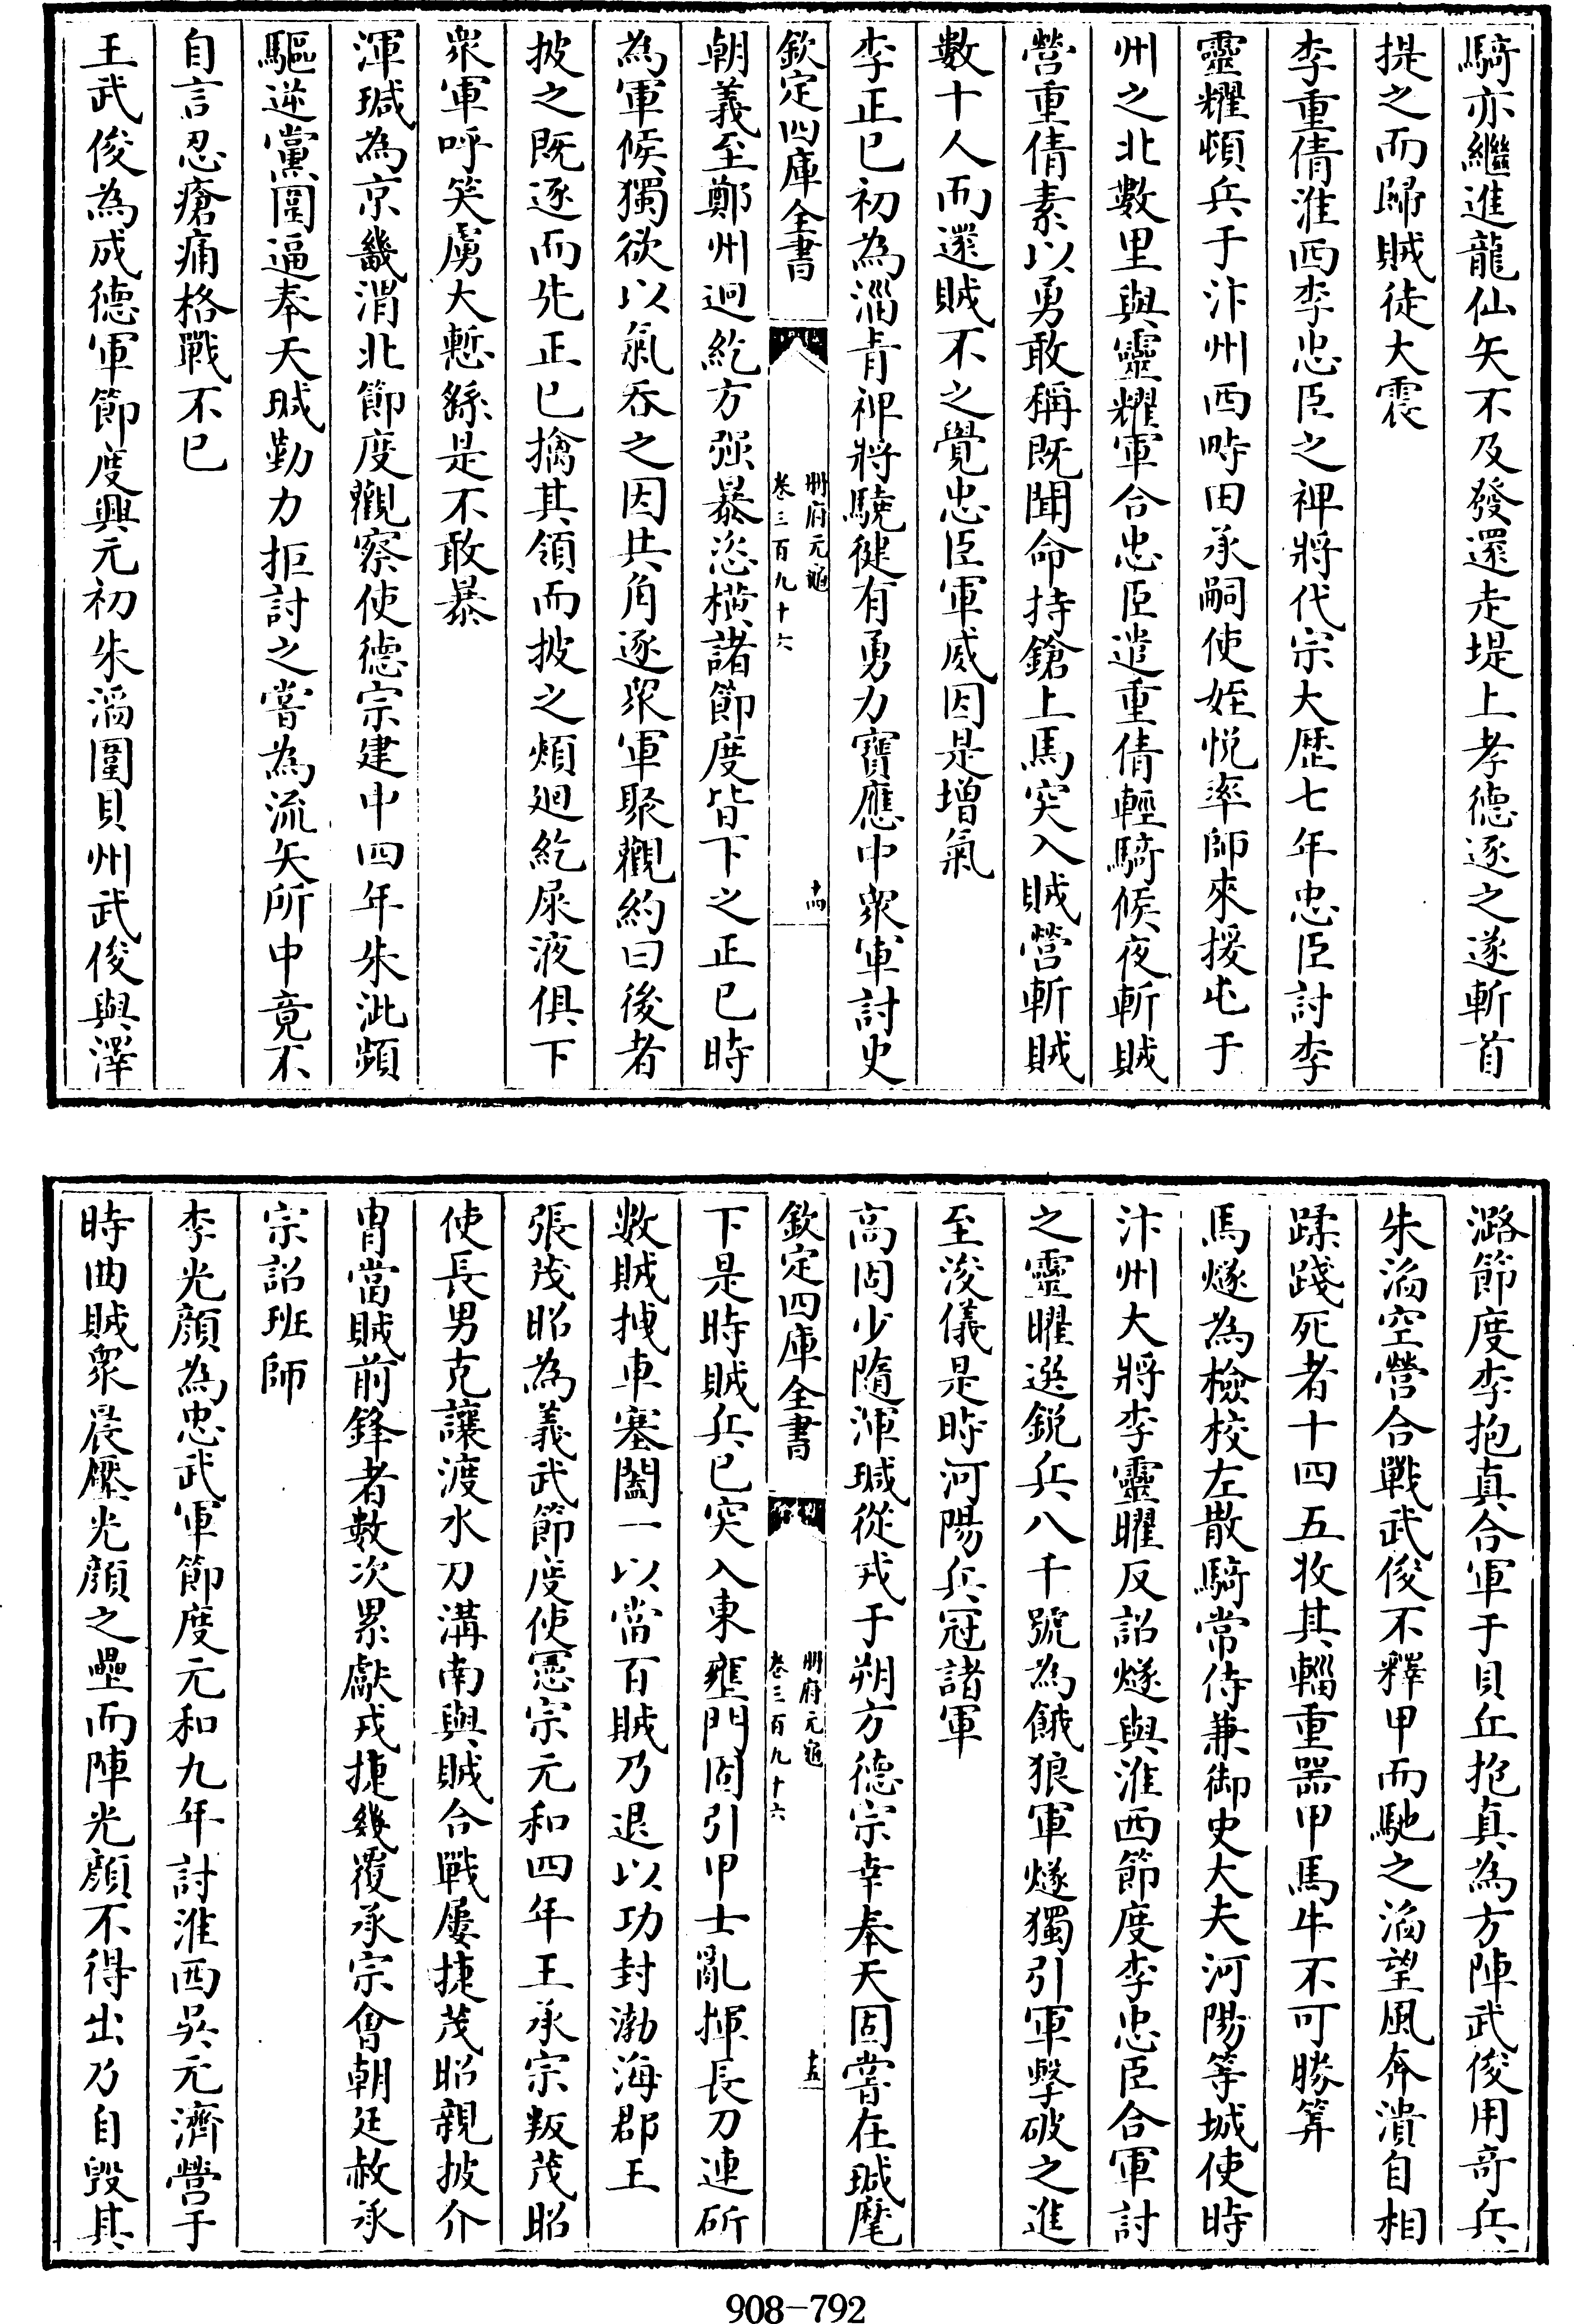 騎亦繼進龍仙矢不及發還走堤上孝德逐之遂斬首
提之而歸賊徒大震
李重倩淮西李忠臣之裨將代宗大歴七年忠臣討李
靈耀頓兵于汴州西時田承嗣使姪悅率師來援屯于
州之北數里與靈耀軍合忠臣遣重倩輕騎候夜斬賊
營重倩素以勇敢稱既聞命持鎗上馬突入賊營斬賊
數十人而還賊不之覺忠臣軍威因是增氣
李正已初為淄青裨將驍健有勇力寳應中衆軍討史
欽定四庫全書
冊府元龜
卷三百九十六
十四
朝義至鄭州迴紇方强暴恣橫諸節度皆下之正已時
為軍候獨欲以氣吞之因共角逐衆軍聚觀約曰後者
披之既逐而先正已擒其領而披之頰迴紇尿液俱下
衆軍呼笑虜大慙繇是不敢暴
渾瑊為京畿渭北節度觀察使德宗建中四年朱泚頻
驅逆黨圍逼奉天瑊勠力拒討之嘗為流矢所中竟不
自言忍瘡痛格戰不已
王武俊為成德軍節度興元初朱滔圍貝州武俊與澤
潞節度李抱真合軍于貝丘抱真為方陣武俊用奇兵
朱滔空營合戰武俊不釋甲而馳之滔望風奔潰自相
蹂踐死者十四五收其輜重器甲馬牛不可勝筭
馬燧為檢校左散騎常侍兼御史大夫河陽等城使時
汴州大將李靈曜反詔燧與淮西節度李忠臣合軍討
之靈曜選鋭兵八千號為餓狼軍燧獨引軍擊破之進
至浚儀是時河陽兵冠諸軍
高固少隨渾瑊從戎于朔方德宗幸奉天固嘗在瑊麾
欽定四庫全書
冊府元龜
卷三百九十六
十五
下是時賊兵已突入東壅門固引甲士亂揮長刀連斫
數賊拽車塞闔一以當百賊乃退以功封渤海郡王
張茂昭為義武節度使憲宗元和四年王承宗叛茂昭
使長男克讓渡水刀溝南與賊合戰屢捷茂昭親披介
冑當賊前鋒者數次累獻戎捷幾覆承宗會朝廷赦承
宗詔班師
李光顔為忠武軍節度元和九年討淮西吳元濟營于
時曲賊衆晨壓光顔之壘而陣光顔不得出乃自毀其
908-792